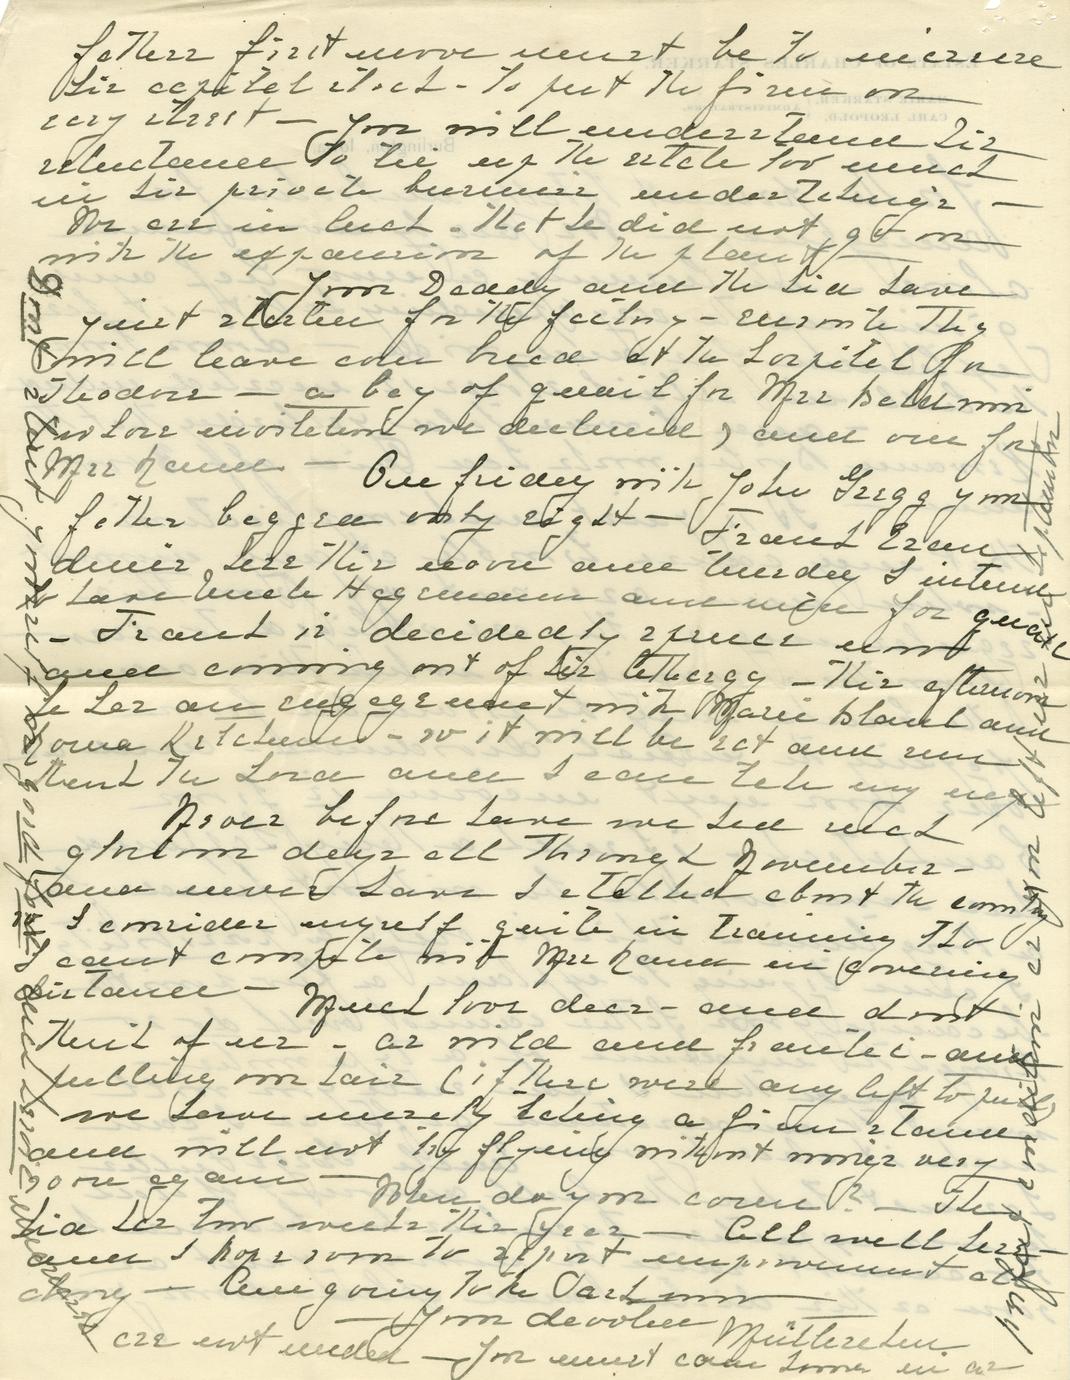 fathers first move must be to increase
his capital stock - to put the firm on
easy street - You will understand his
reluctance to tie up the estate too much
in his private business undertakings -
We are in luck - that he did not go on
with the expansion of the plant -
Your Daddy and the kid have
just started for the factory - enroute they
will leave corn bread at the hospital for
Theodore - a bag of quail for Mrs Baldwin
(whose invitation we declined) and one for
Mrs Rand - On friday with John Gregg your
father bagged only eight - Frank Eran
dines here this noon and tuesday I intend
to have Uncle Hagemann and wife for quail
- Frank is decidedly spruce now
and coming out of his lethargy - this afternoon
he has an engagement with Marie Bland and
Rowena Ketcham - so it will be eat and run
thank the Lord and I can take my nap
Never before have we had such
glorious days all through November -
and never have I stalked about the country
so I consider myself quite in training tho
I cant compete with Mrs Rand in covering
distance - Much love dear - and dont
think of us - as wild and frantic - and
pulling our hair (if there were any left to pull)
we have merely taking a firm stand
and will not try flying without wings very
soon again - When do you come? - The
kid has two weeks this year - All well here
and I hope soon to report improvement all
along - Am going to the Park now
- Your devoted Mütterchen
are not needed - You must come home in as
perfect condition as you left us in September
Dont start yourself any good food and send some